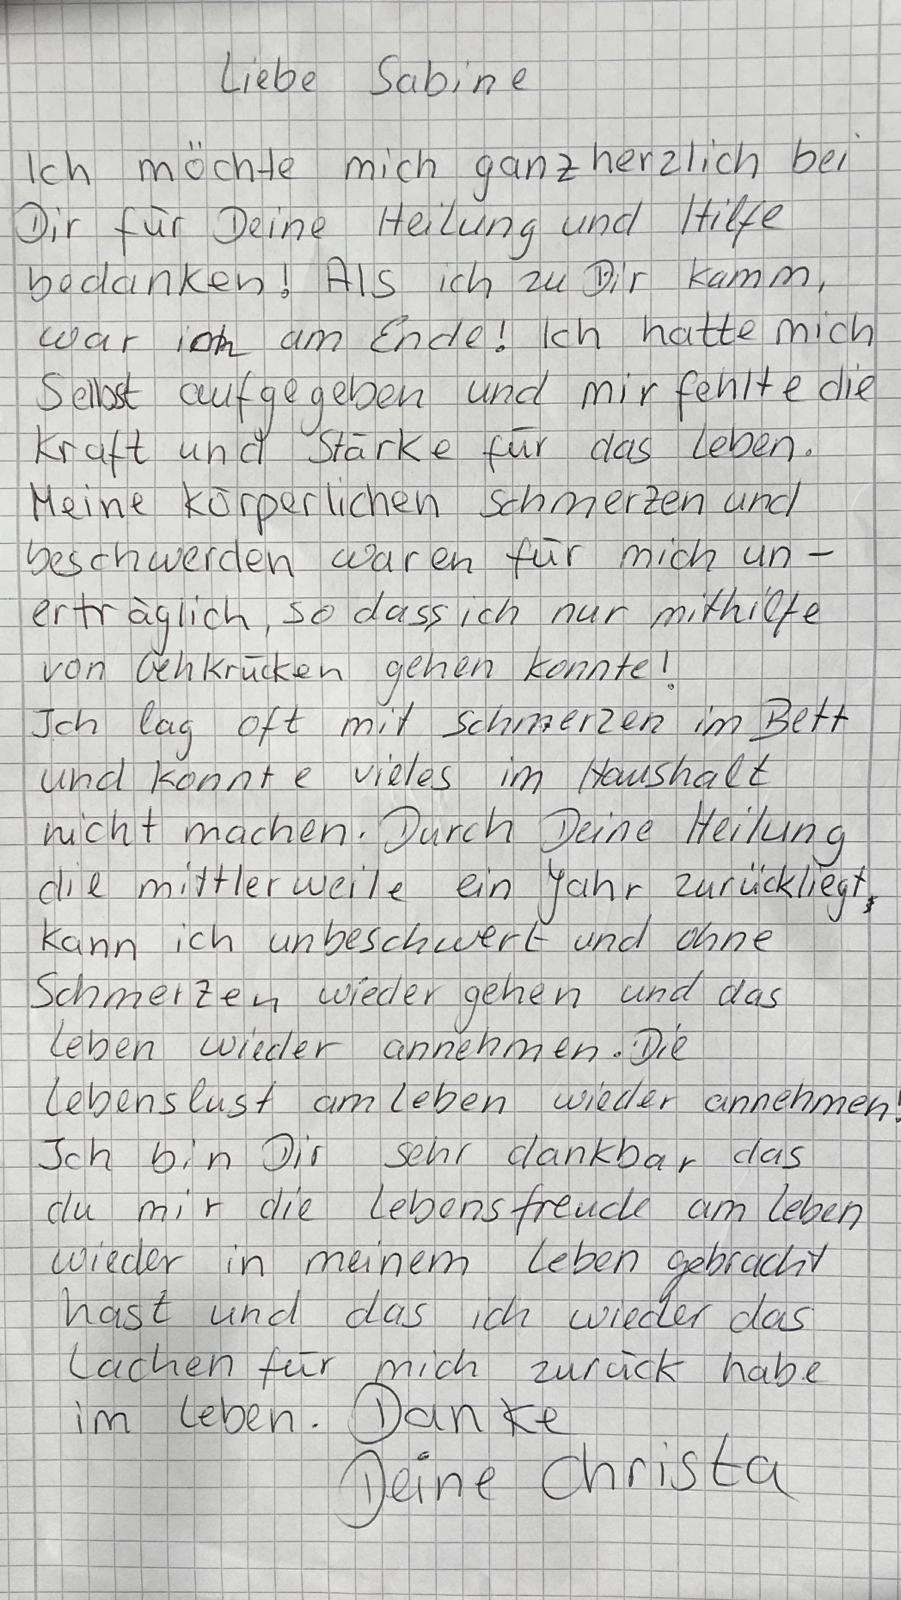 Liebe Sabine
Ich möchte mich ganz herzlich bei
Dir für Deine Heilung und Hilfe
bedanken! Als ich zu Dir kamm,
war ich am Ende! Ich hatte mich
Selbst aufgegeben und mir fehlte die
Kraft und Stärke für das Leben.
Meine körperlichen Schmerzen und
beschwerden waren für mich un-
erträglich, so dass ich nur mithilfe
von Gehkrücken gehen konnte!
Ich lag oft mit Schmerzen im Bett
und konnte vieles im Haushalt
nicht machen. Durch Deine Heilung
die mittlerweile ein Jahr zurückliegt,
kann ich unbeschwert und ohne
Schmerzen wieder gehen und das
Leben wieder annehmen. Die
Lebenslust am Leben wieder annehmen!
Ich bin Dir sehr dankbar das
du mir die Lebensfreude am Leben
wieder in meinem Leben gebracht
hast und das ich wieder das
Lachen für mich zurück habe
im Leben. Danke
Deine Christa